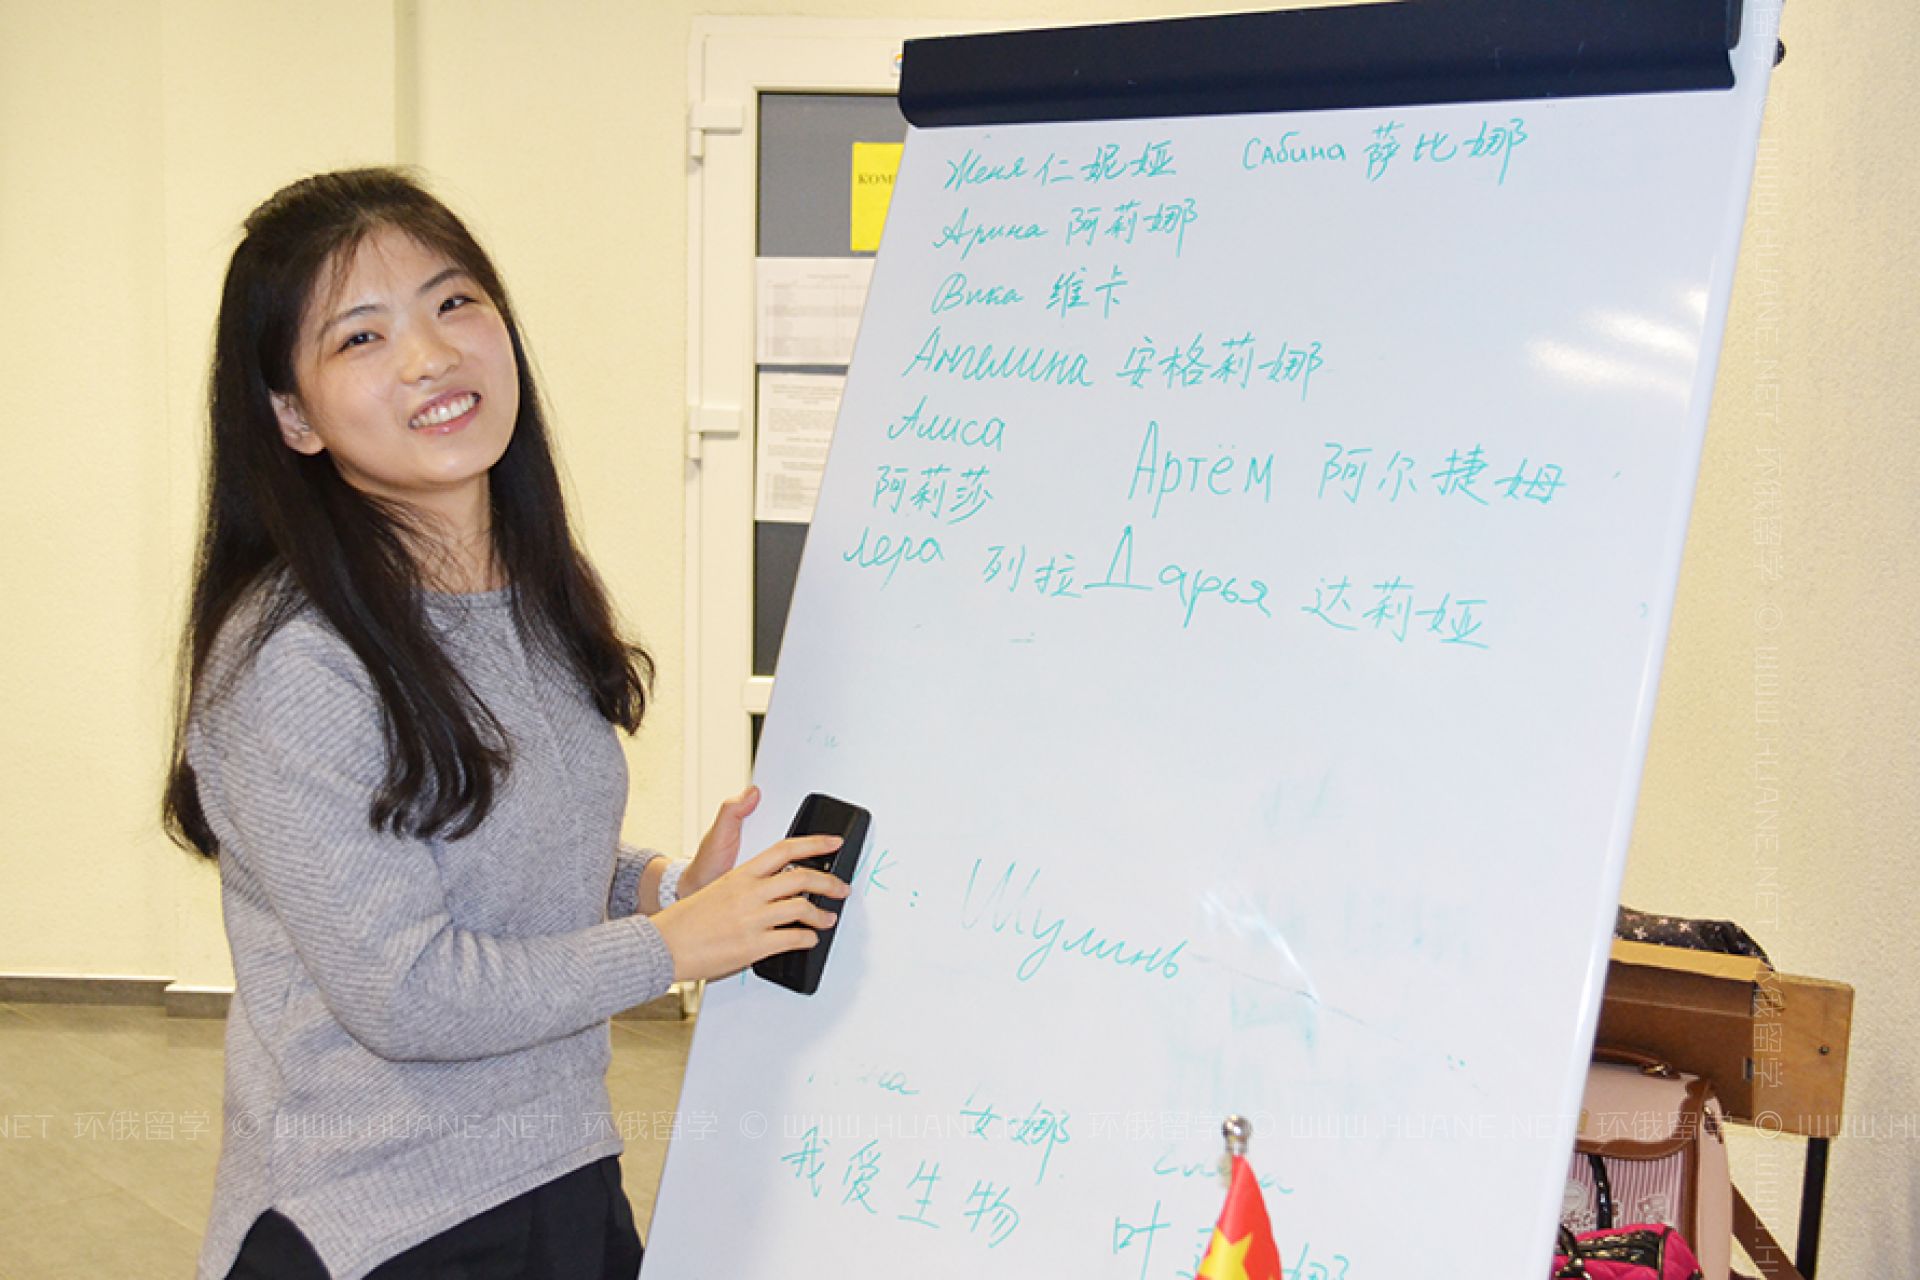 Женя 仁妮娅 Сабина 萨比娜
Арина 阿莉娜
Вика 维卡
Ангелина 安格莉娜
Алиса
阿莉莎
Артём 阿尔捷姆
Лера 列拉 Дарья 达莉娅
КОМ
Шулинь
安娜
我爱生物
叶 娜
环俄留学 © WWW.HUANE.NET 环俄留学 © WWW.HUANE.NET 环俄留学 © WWW.HUANE.NET 环俄留学 ©